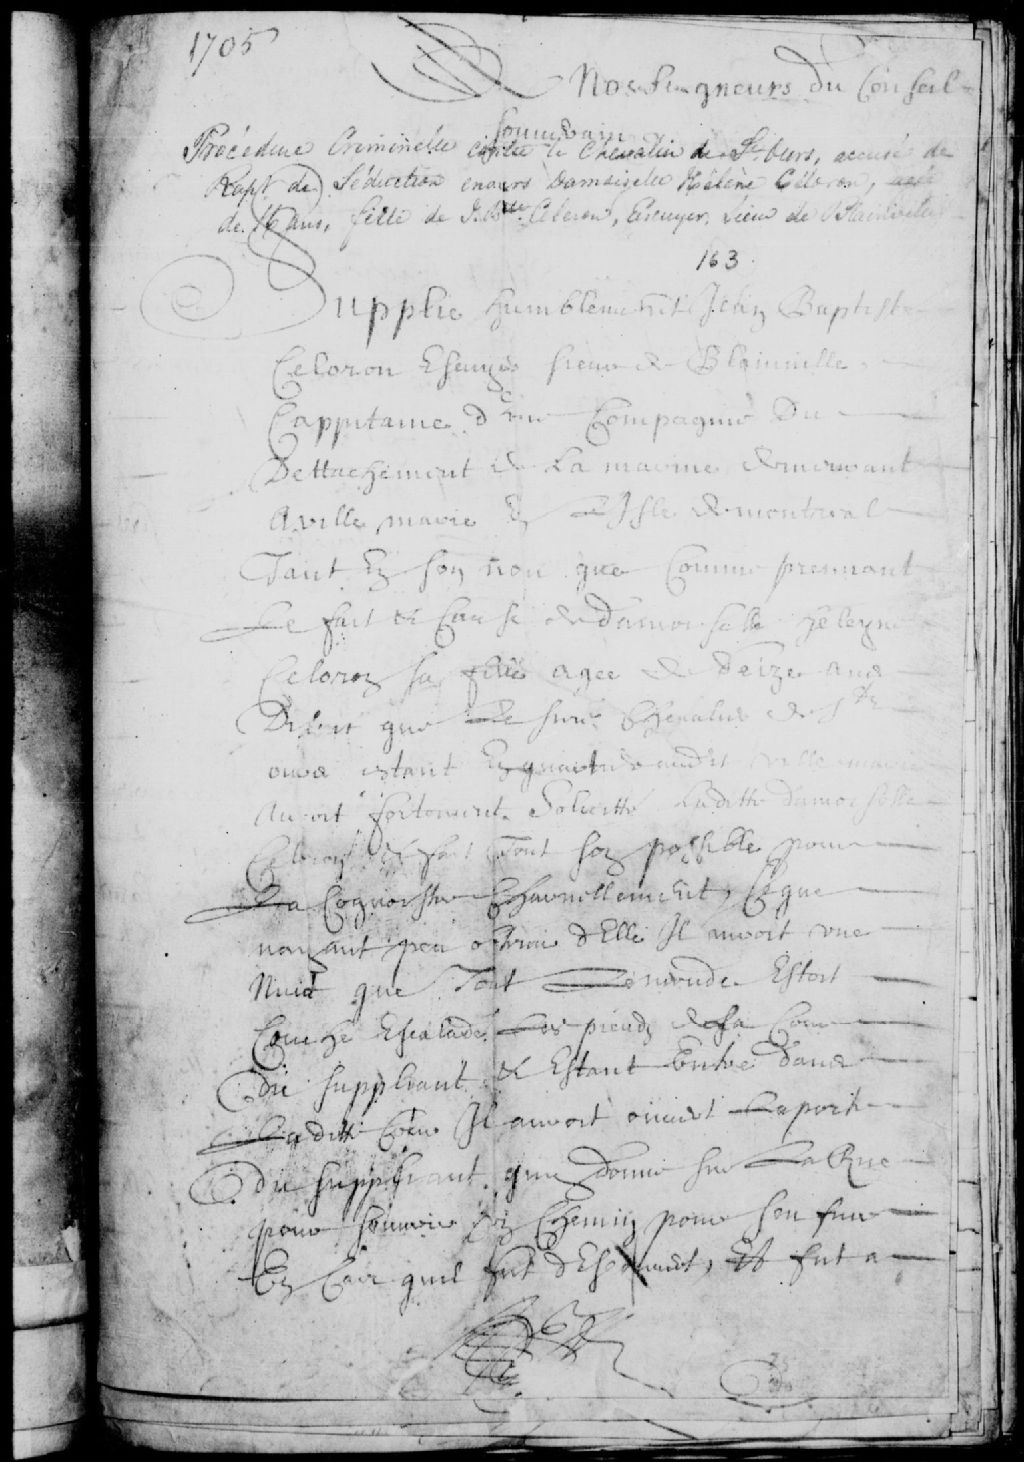 1705
Nosseigneurs du Conseil
Souverain
Procédure Criminelle contre le Chevalier de St. Ours, accusé de
Rapt de Séduction envers Damoiselle Hélène Céloron,
de 16 ans, fille de J. Bte Céloron, Ecuyer, Sieur de Blainville
163
Supplie humblement Jean Baptiste
Celoron Escuyer sieur de Blainville
Cappitaine d'une Compagnie Du
Dettachement de La marine demeurant
a ville marie En L'Isle de montreal
Tant En son non que Comme prennant
Le fait et Cause de damoiselle heleyne
Celoron sa fille agee de Seize ans
Disant que Le sieur Chevalier de St
ours estant En quartier audit ville marie
auroit fortement Solicitté Laditte damoiselle
Celoron et fait Tout son possible pour
La Cognoistre Charnellement, Ce que
nayant peu obtenir d'Elle Il auroit une
Nuit que Tout Le monde Estoit
Couché Escaladé Les pieuds de la Cour
du suppliant et Estant Entré dans
Laditte Cour Il auroit ouvert La porte
du suppliant qui donne sur La Rue
pour souvrir un Chemin pour sen fuir
En Cas quil fut dEscouvert, Et fut a